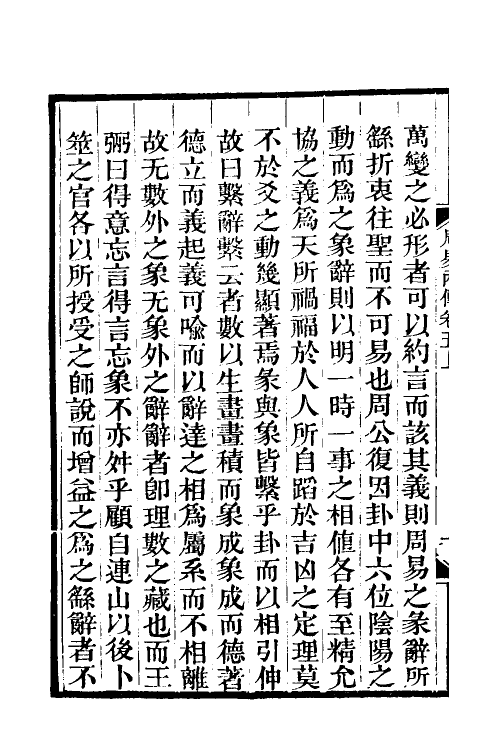 萬變之必形者可以約言而該其義則周易之彖辭所
繇折衷往聖而不可易也周公復因卦中六位陰陽之
動而爲之象辭則以明一時一事之相値各有至精允
協之義爲天所禍福於人人所自蹈於吉凶之定理莫
不於爻之動幾顯著焉彖與象皆繫乎卦而以相引伸
故曰繫辭繫云者數以生畫畫積而象成象成而德著
德立而義起義可喩而以辭達之相爲屬系而不相離
故无數外之象无象外之辭辭者卽理數之藏也而王
弼曰得意忘言得言忘象不亦舛乎顧自連山以後卜
筮之官各以所授受之師說而增益之爲之繇辭者不